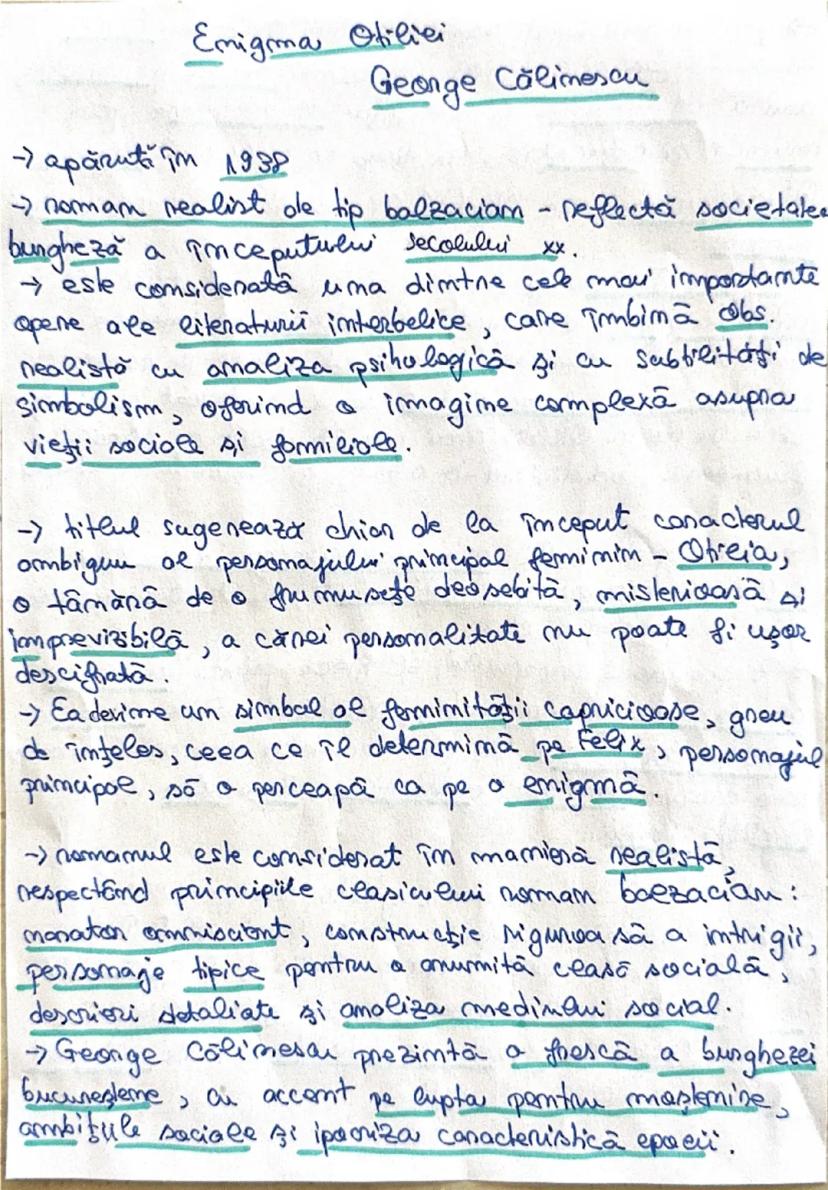 Enigma Otiliei
George Călinescu
→ apărută în 1938
→ roman realist de tip balzacian - reflectă societatea
burgheză a începutului secolului xx.
→ este considerată una dintre cele mai importante
opere ale literaturii interbelice, care îmbină obs.
realistă cu analiza psihologică și cu subtilități de
simbolism, oferind o imagine complexă asupra
vieții sociale și familiale.
→ titlul sugerează chiar de la început caracterul
ambiguu al personajului principal feminin - Otilia,
o tânără de o frumusețe deosebită, misterioasă și
imprevizibilă, a cărei personalitate nu poate fi ușor
descifrată.
→ Ea devine un simbol al feminității capricioase, greu
de înțeles, ceea ce îl determină pe Felix, personajul
principal, să o perceapă ca pe o enigmă.
→ romanul este considerat în manieră realistă,
respectând principiile clasicului roman balzacian:
narator omniscient, construcție riguroasă a intrigii,
personaje tipice pentru o anumită clasă socială,
descrieri detaliate și analiza mediului social.
→ George Călinescu prezintă o frescă a burgheziei
bucureștene, cu accent pe lupta pentru moștenire,
ambițiile sociale și ipocrizia caracteristică epocii.